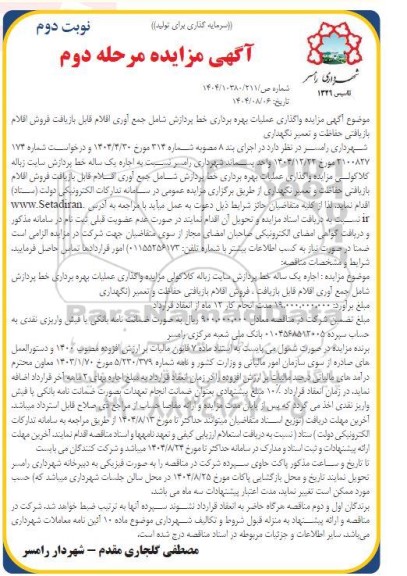 ((سرمایه گذاری برای تولید))
نوبت دوم
آگهی مزایده مرحله دوم
شهرداری رامسر
تاسیس ۱۳۲۹
شماره ص/۱۰۳۸۰/۲۱۱/۱۴۰۴
تاریخ: ۱۴۰۴/۰۸/۰۶
موضوع آگهی مزایده واگذاری عملیات بهره برداری خط پردازش شامل جمع آوری اقلام قابل بازیافت فروش اقلام
بازیافتی حفاظت و تعمیر نگهداری
شهرداری رامسر در نظر دارد در اجرای بند ۸ مصوبه شماره ۳۱۴ مورخ ۱۴۰۴/۴/۳۰ و درخواست شماره ۱۷۴
۲۱۰۰۸۲۷ مورخ ۱۴۰۴/۱۲/۲۴ واحد پسماند شهرداری رامسر نسبت به اجاره یک ساله خط پردازش سایت زباله
کلاکولی مزایده واگذاری عملیات بهره برداری خط پردازش شامل جمع آوری اقلام قابل بازیافت فروش اقلام
بازیافتی حفاظت و تعمیر نگهداری از طریق برگزاری مزایده عمومی در سامانه تدارکات الکترونیکی دولت (ستاد)
اقدام نماید، لذا از کلیه متقاضیان حائز شرایط ذیل دعوت به عمل میآید با مراجعه به آدرس www.Setadiran.
ir نسبت به دریافت اسناد مزایده و تحویل آن اقدام نمایند در صورت عدم عضویت قبلی ثبت نام در سامانه مذکور
و دریافت گواهی امضای الکترونیکی صاحبان امضای مجاز از سوی متقاضیان جهت شرکت در مزایده الزامی است
ضمنا در صورت نیاز به کسب اطلاعات بیشتر با شماره تلفن: ۰۱۱۵۵۲۵۶۱۷۳ امور قراردادها تماس حاصل فرمایید.
شرایط و مشخصات مناقصه:
موضوع مزایده : اجاره یک ساله خط پردازش سایت زباله کلاکولی مزایده واگذاری عملیات بهره برداری خط پردازش
شامل جمع آوری اقلام قابل بازیافت ، فروش اقلام بازیافتی حفاظت وتعمیر (نگهداری
مبلغ برآورد: ۱۹،۰۰۰،۰۰۰،۰۰۰ مدت انجام کار ۱۲ ماه از انعقاد قرارداد
مبلغ تضمین شرکت در مناقصه معادل ۹۰۰،۰۰۰،۰۰۰ ریال به صورت ضمانت نامه بانکی یا فیش واریزی نقدی به
حساب سپرده ۰۱۰۴۵۶۸۵۱۲۰۰۵ بانک ملی شعبه مرکزی رامسر
برنده مزایده در صورت شمول می بایست به استناد ماده ۷ قانون مالیات بر ارزش افزوده مصوب ۱۴۰۰ و دستورالعمل
های صادره از سوی سازمان امور مالیاتی و وزارت کشور و نامه شماره ۵/۲۳۰/۳۷۹ مورخ ۱۴۰۳/۱/۷۰ معاون محترم
درآمد های مالیاتی درصد مالیات بر ارزش افزوده را در زمان انعقاد قرارداد به مبلغ اجاره بهای ۲ ماهه آخر قرارداد اضافه
نماید. در زمان انعقاد قرارداد ۱۰٪ مبلغ پیشنهادی بعنوان ضمانت انجام تعهدات بصورت ضمانت نامه بانکی یا فیش
واریز نقدی اخذ می گردد که پس از پایان مدت مزایده و ارائه مفاصا حساب از مراجع ذی صلاح قابل استرداد میباشد.
آخرین مهلت دریافت (توزیع اسناد متقاضیان میتوانند حداکثر تا مورخ ۱۴۰۴/۸/۱۳ از طریق مراجعه به سامانه تدارکات
الکترونیکی دولت ) ستاد ( نسبت به دریافت استعلام ارزیابی کیفی و تعهد نامهها و اسناد مناقصه اقدام نمایند. آخرین مهلت
ارائه پیشنهادات و ثبت اسناد و مدارک در سامانه حداکثر تا مورخ ۱۴۰۴/۸/۲۴ میباشد و شرکت کنندگان می بایست
تا تاریخ و ساعت مذکور پاکت حاوی سپرده شرکت در مناقصه را به صورت فیزیکی به دبیرخانه شهرداری رامسر
تحویل نمایند تاریخ و محل بازگشایی پاکات مورخ ۱۴۰۴/۸/۲۵ در محل سالن جلسات شهرداری میباشد که) حسب
مورد ممکن است تغییر نماید، مدت اعتبار پیشنهادات سه ماه می باشد.
برندگان اول و دوم مناقصه هرگاه حاضر به انعقاد قرارداد نشوند سپرده آنها به ترتیب ضبط خواهد شد، شرکت در
مناقصه و ارائه پیشنهاد به منزله قبول شروط و تکالیف شهرداری موضوع ماده ۱۰ آئین نامه معاملات شهرداری
می‌باشد، سایر اطلاعات و جزئیات مربوطه در اسناد مناقصه درج شده است.
مصطفی گلجاری مقدم - شهردار رامسر